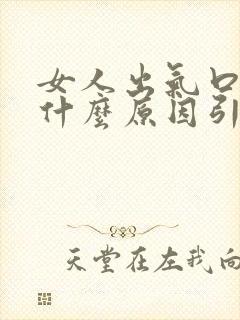 女人出氣口
什麼原因引
天堂在左我向